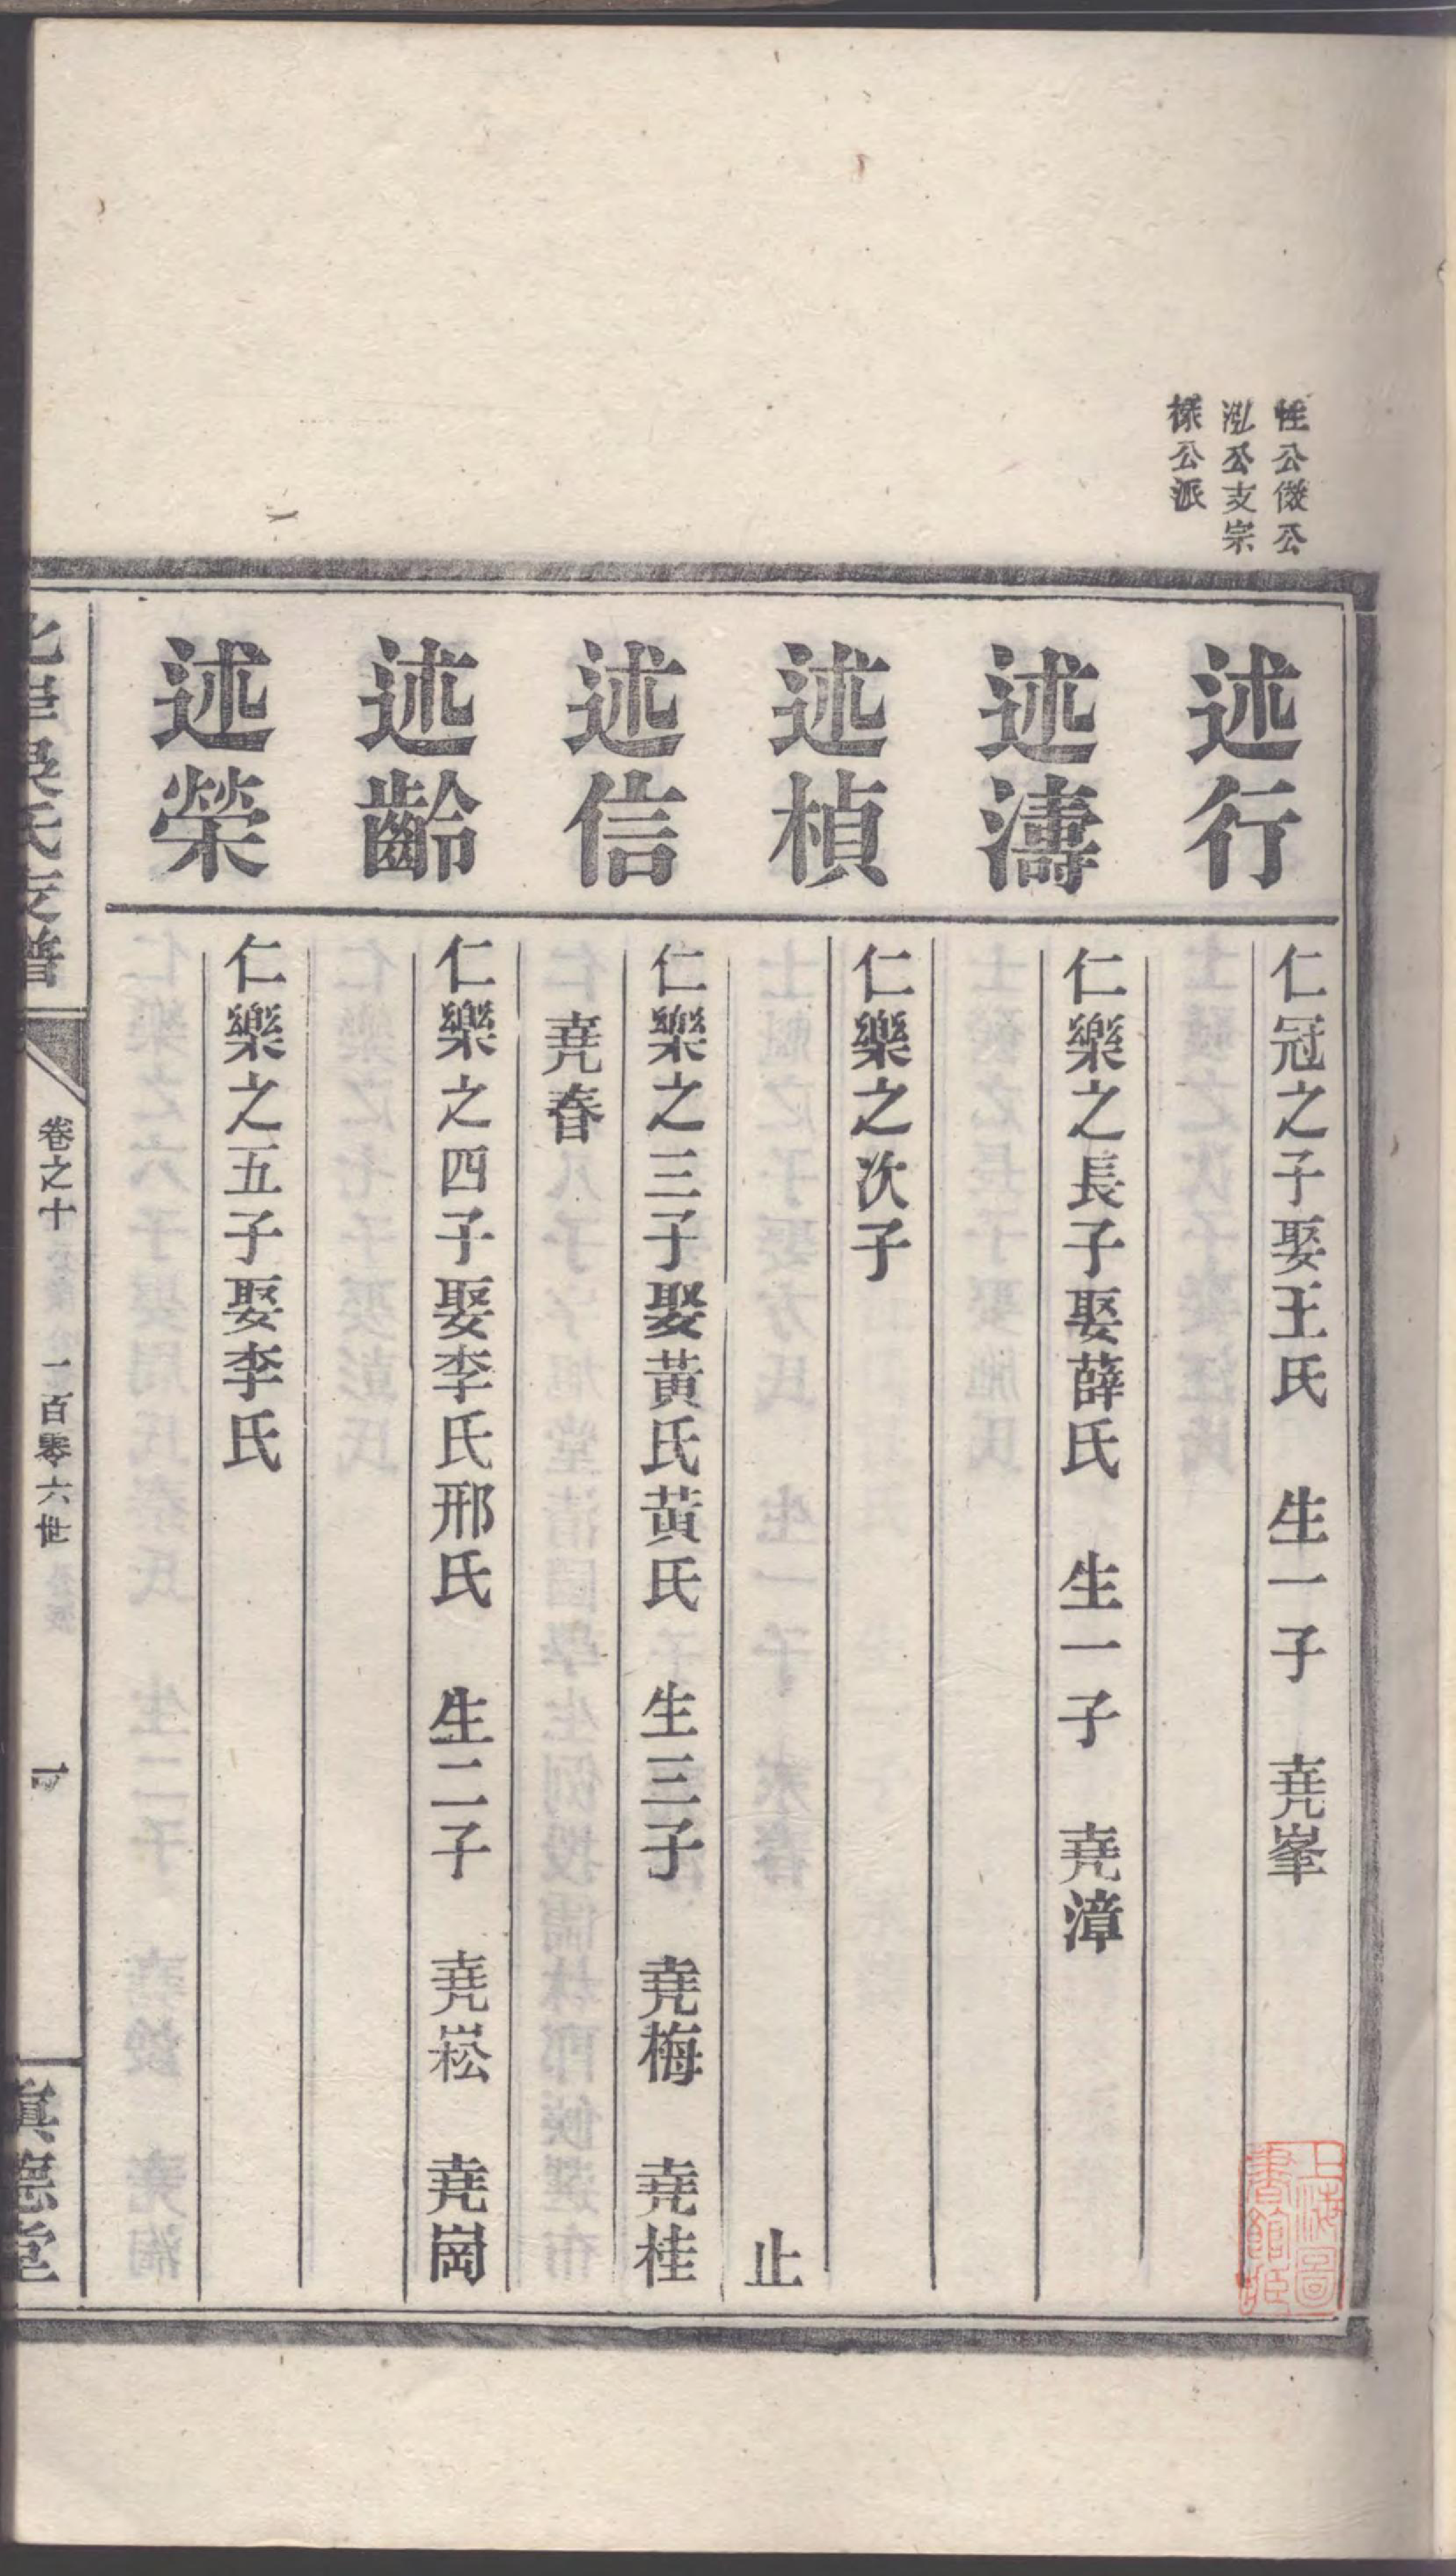 性公傚公
泓公支宗
楺公派
述行
仁冠之子娶王氏　生一子　堯峯
述濤
仁樂之長子娶薛氏　生一子　堯漳
述楨
仁樂之次子
止
述信
仁樂之三子娶黃氏黃氏　生三子　堯梅　堯桂
堯春
述齡
仁樂之四子娶李氏邢氏　生二子　堯崧　堯崗
述榮
仁樂之五子娶李氏
吳氏支譜
卷之十
一百零六世
眞德堂
上海圖書館藏